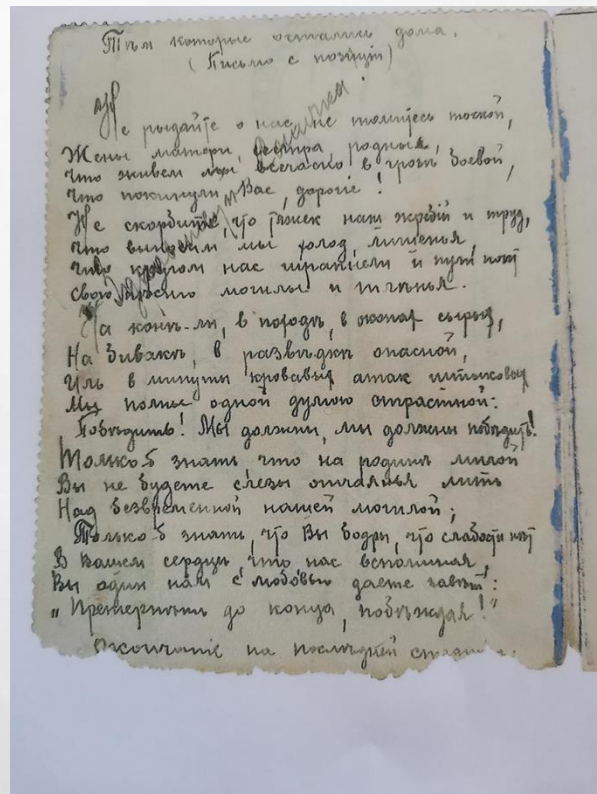 Тѣм которые остались дома.
(Письмо с позицій)
Не рыдайте о нас, не томитесь тоской,
Жены матери, сестра родныя,
Что живем мы всечасно в грозѣ боевой,
Что покинули Вас, дорогіе!
Не скорбите, что тяжек наш жребій и труд,
Что выносим мы голод, лишенья,
Что кругом нас шрапнели и пули поют
Свою пѣсню могилы и тлѣнья.
На конѣ-ли, в походѣ, в окопах сырых,
На бивакѣ, в развѣдкѣ опасной,
Иль в минуты кровавых атак штыковых
Мы полны одной думою страстной:
Побѣдить! Мы должны, мы должны побѣдить!
Только б знать, что на родинѣ милой
Вы не будете слезы отчаянья лить
Над безвременной нашей могилой;
Только б знать, что Вы бодры, что слабости нѣт
В Вашем сердцѣ, что нас вспоминая,
Вы один нам с любовью даете завѣт:
„Претерпѣть до конца, побѣждая!"
Окончаніе на послѣдней